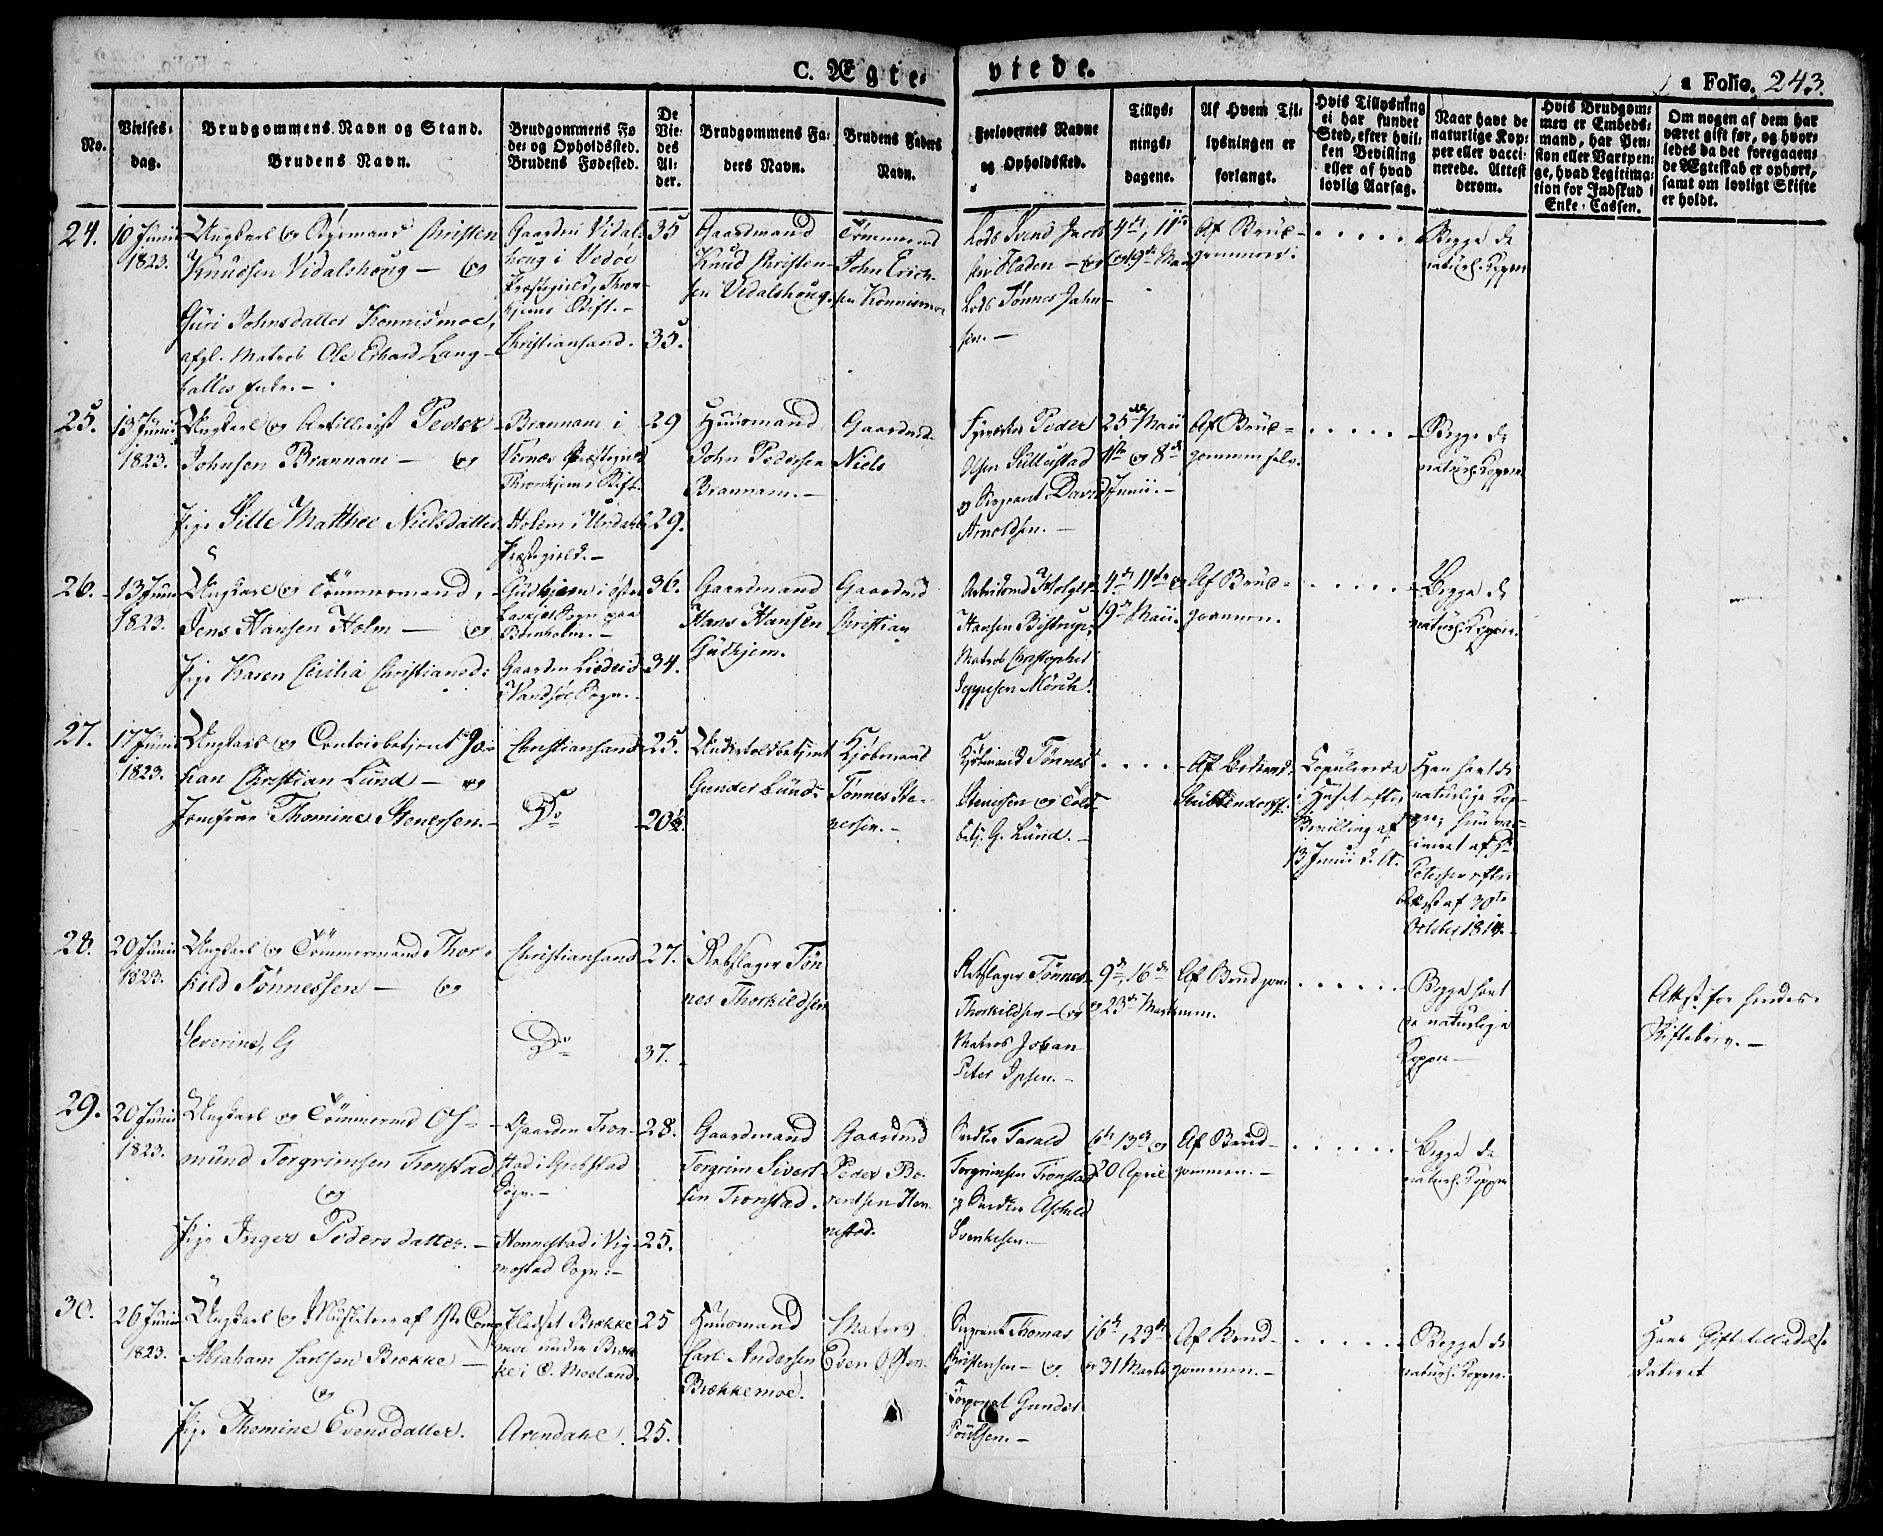 C. Ægte- viede.
a Folio. 243.
No.
Vielses-
dag.
Brudgommens Navn og Stand.
Brudens Navn.
Brudgommens Fø
de- og Opholdssted.
Brudens Fødested.
De
Vie-
des
Al-
der.
Brudgommens Fa-
ders Navn.
Brudens Faders
Navn.
Forlovernes Navne
og Opholdssted.
Tillys-
nings-
dagene.
Af Hvem Til-
lysningen er
forlangt.
Hvis Tillysning
ei har fundet
Sted, efter hvil-
ken Bevilling
eller af hvad
lovlig Aarsag.
Naar havt de
naturlige Kop-
per eller vacci-
nerede. Attest
derom.
Hvis Brudgom-
men er Embeds-
mand, har Pen-
sion eller Vartpen-
ge, hvad Legitima-
tion for Indskud i
Enke-Cassen.
Om nogen af dem har
været gift før, og hvor-
ledes da det foregaaen-
de Ægteskab er ophørt,
samt om lovligt Skifte
er holdt.
24.
10 Junii
1823.
Ungkarl og Christen
Knudsen Vidalshoug — og
Guri Johnsdatter Konnismoe,
afgl. Matros Ole Erhard Lang-
Gaarden Vidals-
houg i Vedøe
Præstegield, Thron-
hjems Stift.-
Christiansand.
35
35.
Gaardmand
Knud Christen-
sen Vidalshoug.
Tømmermd
John Erich-
sen Konnismoe
Lods Svend Jacob
sen Fladen — og
Lods Tønnes Jahn-
sen.—
4de, 11te
og 19de Mai
Af Brud-
gommen.
Begge de
naturl. Kopper
25.
13 Junii
1823.
Ungkarl og Artillerist Peder
Johnsen Brannam — og
Pige Sille Mathea Nielsdatter
Brannam i
Værnes Præstegield
Thronhjems Stift.
Holem i Undahls
Præstegield.-
29
29.
Huusmand
John Pedersen
Brannam.—
Gaardmd.
Niels
Peder
Olsen Sillestad
og Sergeant David
Arnoldsen.—
25de Maii
1ste og 8de
Junii.—
Af Brud-
gommen selv.
Begge de
naturl. Kopper.
26.
13 Junii
1823.
Ungkarl og Tømmermand,
Jens Hansen Holm — og
Pige Karen Cecilia Christiansd:
Gudhjem i Øster
Sogn paa
Bornholm.—
Gaarden
i Vandsøe Sogn.
36.
34.
Gaardmand
Hans Hansen
Gudhjem.
Gaardmd
Christian
Arbeidsmd Holger
Hansen Bistrup,
Matros Christopher
Jeppesen Mörch.
4de 11te og
19de Maii.
Af Brud-
gommen.
Begge de
naturl. Kopper.
27.
17 Junii
1823.
Ungkarl og Contoirbetjent Jo-
han Christian Lund — og
Jomfrue Thomine Stenersen.—
Christiansand
Do
25.
20½.
Undertoldbetjent
Gunder Lund
Kjøbmand
Tønnes Ste-
nersen.—
Kjøbmand Tønnes
Stenersen og Told-
betj. G. Lund.—
Af
Copulerede
i Huset efter
Bevilling af
13 Junii d. A.
Han havt de
naturlige Kop-
per, hun vac-
cineret af Hr.
Petersen efter
Attest af 30te
October 1814.
28.
20 Junii
1823.
Ungkarl og Tømmermand Thor-
kild Tønnessen — og
Severine, G
Christiansand
Do
27.
37.
Rebslager Tøn
nes Thorkildsen
Rebslager Tønnes
Thorkildsen — og
Matros Johan
Peter Ipsen.—
9de, 16de
og 23de Marts
Af Brudgom-
men.
Begge havt
de naturlige
Kopper—
Attest for hendes
Skiftebrev.—
29.
20 Junii
1823.
Ungkarl og Tømmermd Os-
mund Torgrimsen Tronstad
og
Pige Inger Pedersdatter.—
Gaarden Tron-
stad i
Sogn.—
Honnestad i Vig-
mostad Sogn.—
28.
25.
Gaardmand
Torgrim Sivert
sen Tronstad.
Gaardmd
Peder Be-
rentsen Hon-
nestad.
Tarald
Torgrimsen Tronstad
og Aschild
Svenkesen.—
6te 13de og
20 April
Af Brud-
gommen.—
Begge de
naturl. Kopper
30.
26 Junii
1823.
Ungkarl og Musketeer af 1ste Comp
Abraham Carlsen Brække —
og
Pige Thomine Evensdatter.
Pladset Brække
moe under Bræk
ke i O. Moeland.
Arendahl.
25
25.
Huusmand
Carl Andersen
Brækkemoe.
Matros
Even Olsen.
Sergeant Thomas
Christensen — og
Corporal Gunder
Poulsen.—
16de, 23de
og 31 Marts
Af Brud-
gommen.—
Begge de
naturl. Kopper.
Hans Giftetilladelse
dateret